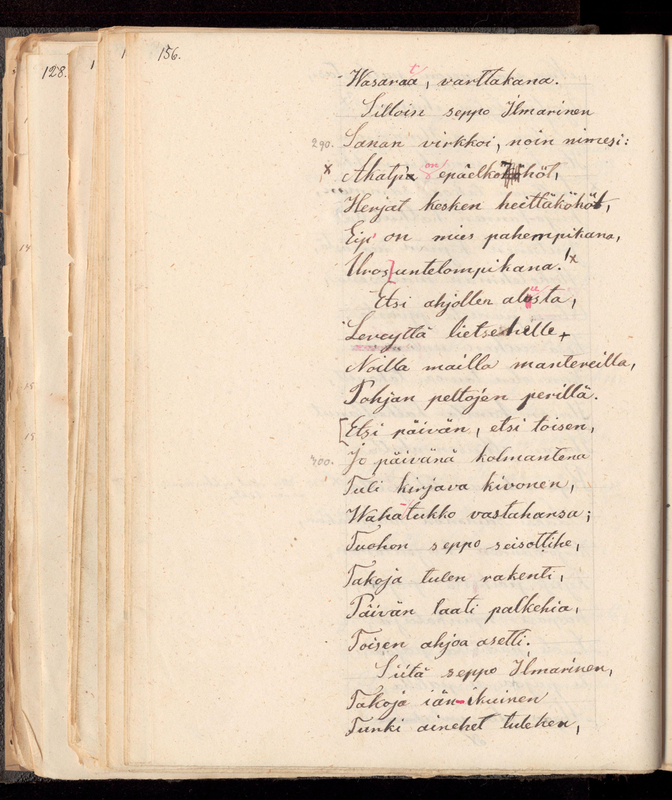 156.
128.
Wasaraa, varttakana.
Silloin seppo Ilmarinen
290. Sanan virkkoi, noin nimesi:
x Akatpa on epäelköhöt,
Herjat kesken heittäköhöt,
Eip' on mies pahempikana,
Uros untelompikana. x
Etsi ahjollen alusta,
Leveyttä lietsehelle,
Noilla mailla mantereilla,
Pohjan peltojen perillä.
[Etsi päivän, etsi toisen,
300. Jo päivänä kolmantena
Tuli kirjava kivonen,
Wahatukko vastahansa;
Tuohon seppo seisottihe,
Takoja tulen rakenti,
Päivän laati palkehia,
Toisen ahjoa asetti.
Siitä seppo Ilmarinen,
Takoja iän-ikuinen
Tunki ainehet tulehen,